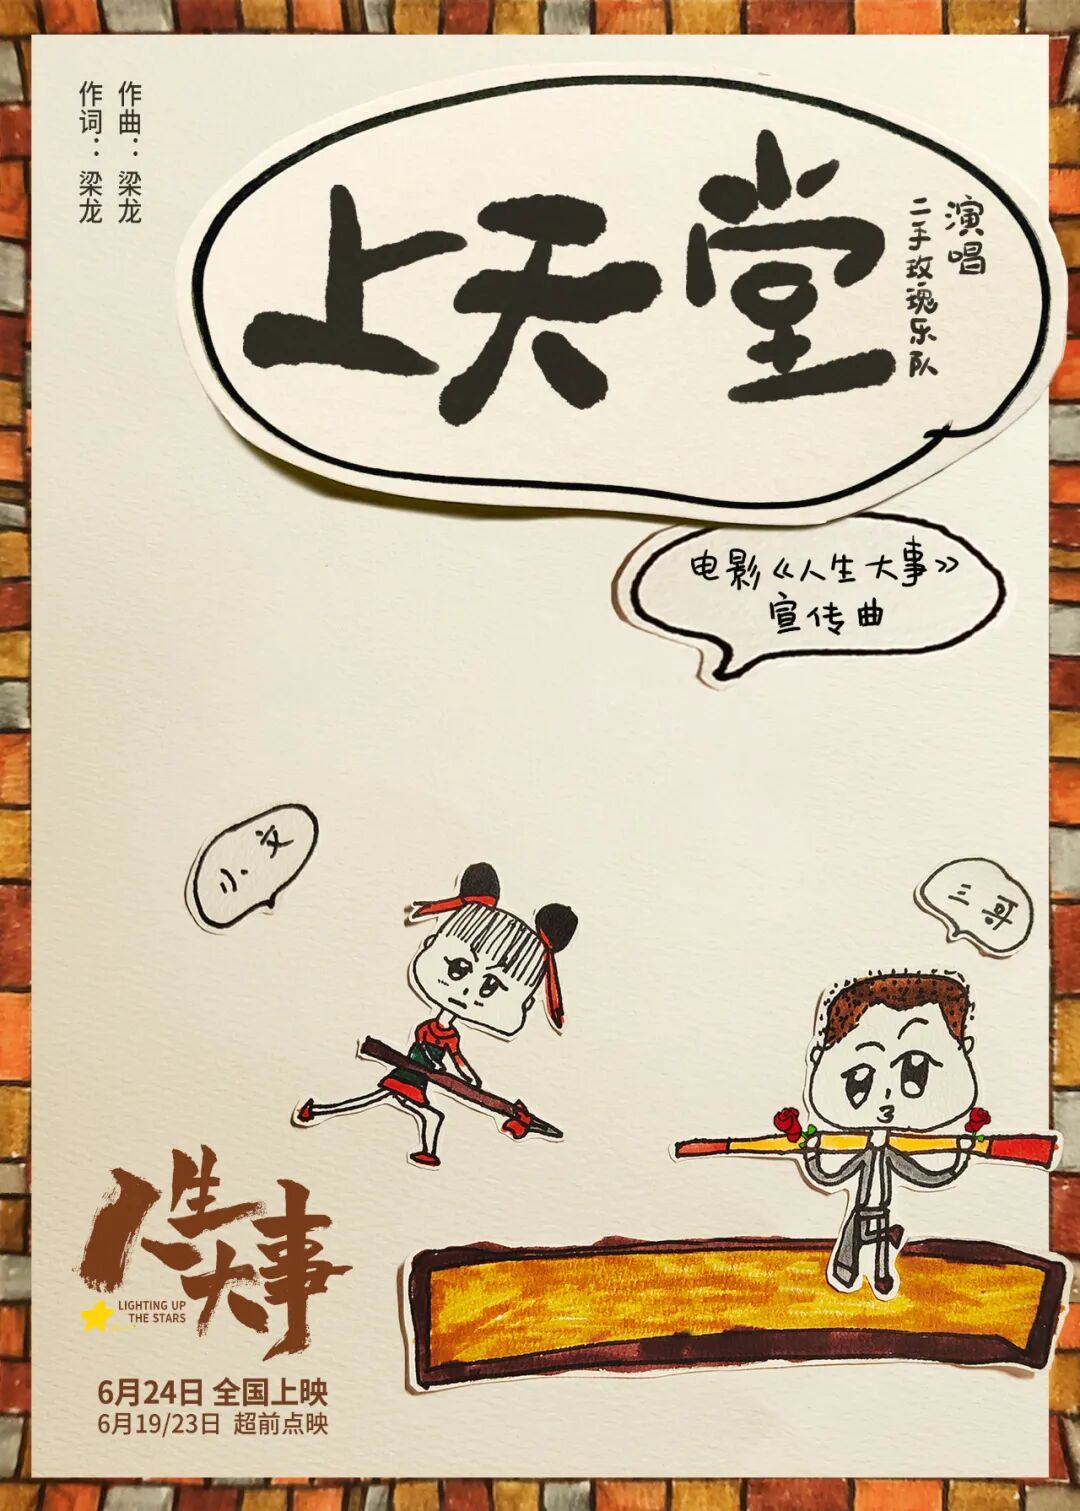 作曲：梁龙
作词：梁龙
上天堂
演唱
二手玫瑰乐队
电影《人生大事》
宣传曲
小文
三哥
人生大事
LIGHTING UP
THE STARS
6月24日 全国上映
6月19/23日 超前点映